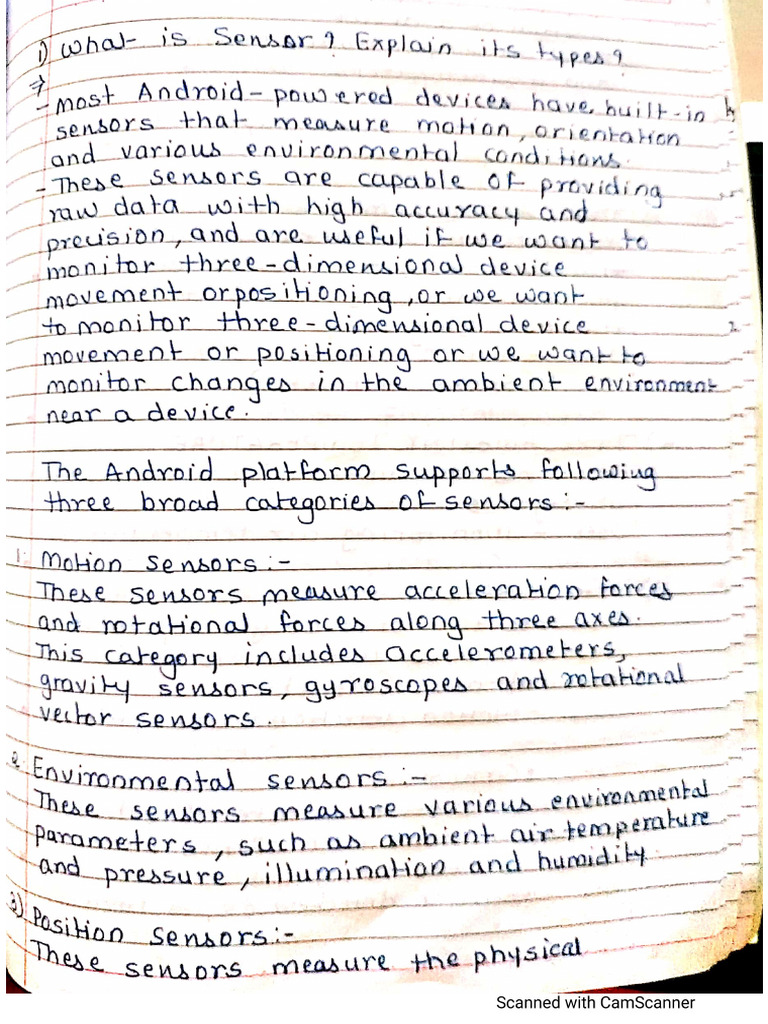 1) What is Sensor? Explain its types?
⇒
- Most Android-powered devices have built-in
sensors that measure motion, orientation
and various environmental conditions.
- These sensors are capable of providing
raw data with high accuracy and
precision, and are useful if we want to
monitor three-dimensional device
movement or positioning, or we want
to monitor three-dimensional device
movement or positioning or we want to
monitor changes in the ambient environment
near a device.
The Android platform supports following
three broad categories of sensors:-
1. Motion sensors:-
These sensors measure acceleration forces
and rotational forces along three axes.
This category includes accelerometers,
gravity sensors, gyroscopes and rotational
vector sensors.
2. Environmental sensors:-
These sensors measure various environmental
parameters, such as ambient air temperature
and pressure, illumination and humidity
3) Position sensors:-
These sensors measure the physical
Scanned with CamScanner